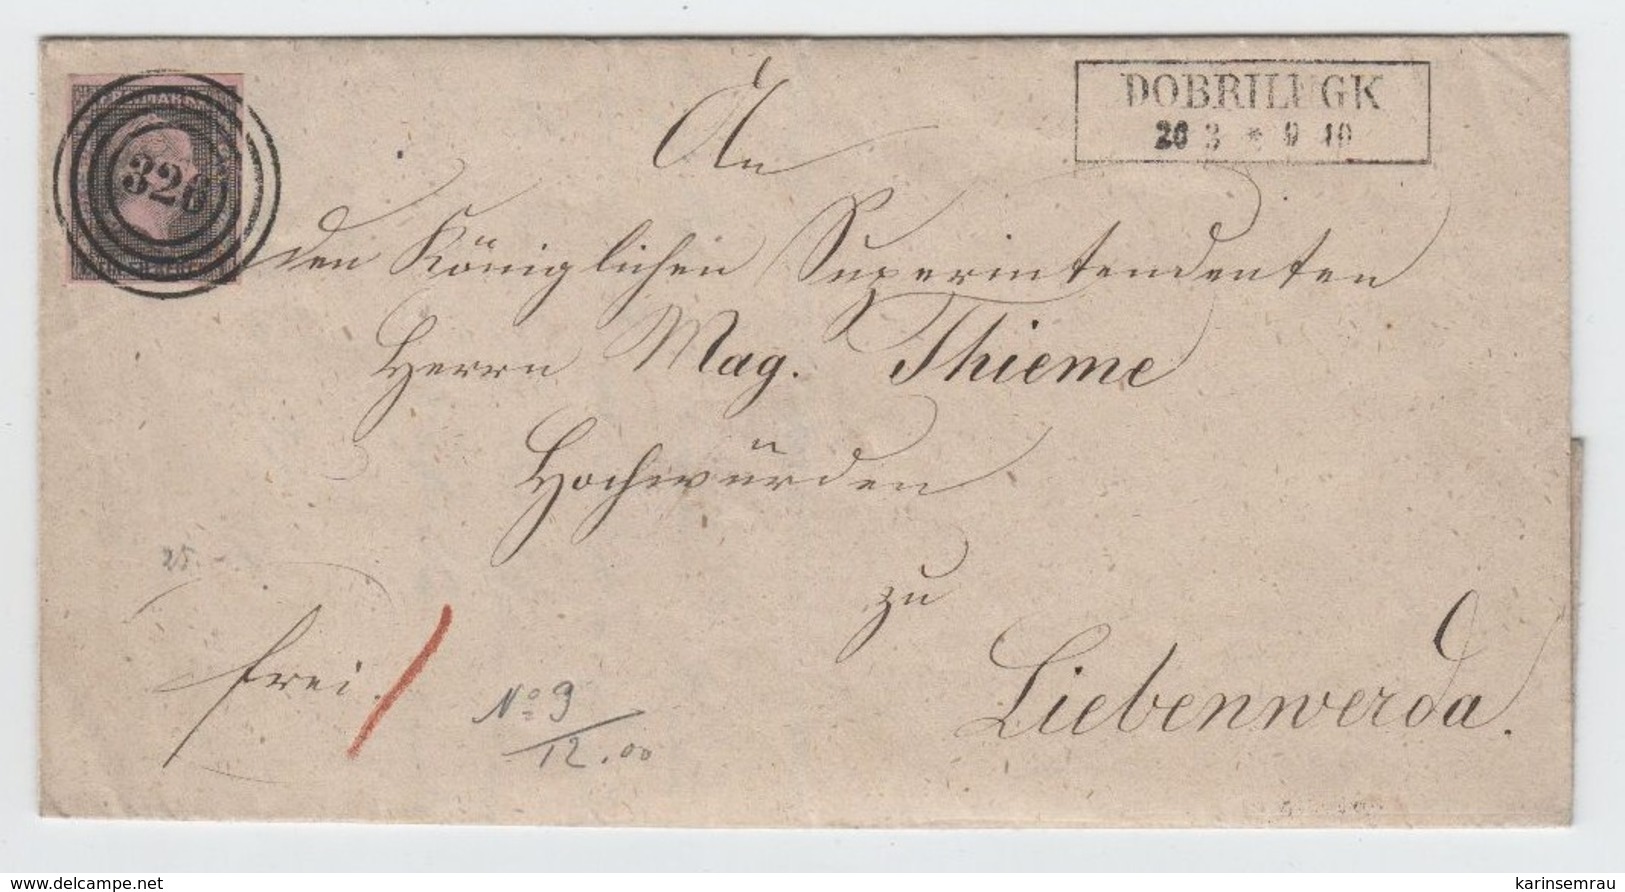 FREIMARKE
326
DOBRILUGK
26 3 * 9 10
An
den Königlichen Superintendenten
Herrn Mag. Thieme
Hochwürden
zu
Liebenwerda.
25.-
frei.
No 9
12.00
www.delcampe.net
karinsemrau